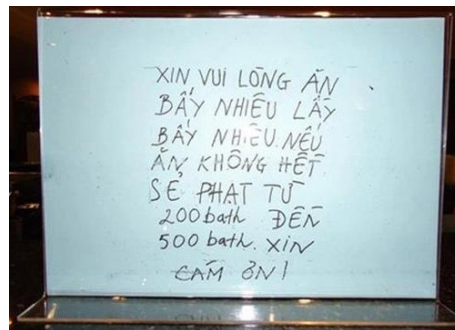 XIN VUI LÒNG ĂN
BẤY NHIÊU LẤY
BẤY NHIÊU. NẾU
ĂN KHÔNG HẾT
SẼ PHẠT TỪ
200 bath ĐẾN
500 bath. XIN
CÁM ƠN!